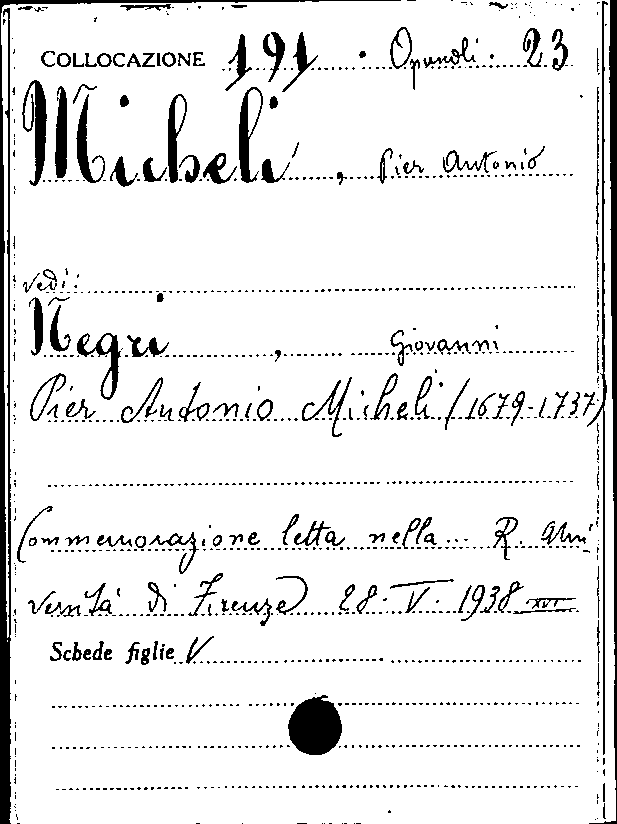 COLLOCAZIONE 191 · Opuscoli · 23
Micheli, Pier Antonio
vedi:
Negri, Giovanni
Pier Antonio Micheli (1679-1737)
Commemorazione letta nella... R. Uni
versità di Firenze 28. V. 1938 XVI
Schede figlie V